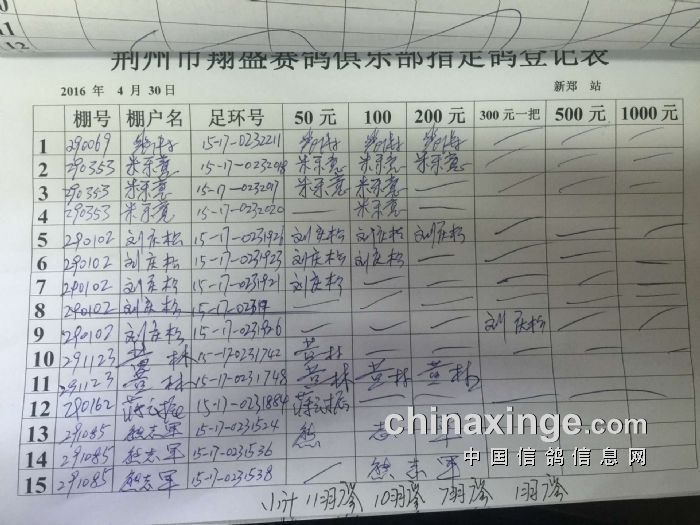 12
荆州市翔盛赛鸽俱乐部指定鸽登记表
2016 年 4 月 30日 新郑 站
棚号 棚户名 足环号 50 元 100 200 元 300元一把 500 元 1000 元
1 290069 15-17-0232211
2 290353 朱宗亮 15-17-0232018 朱宗亮 朱宗亮 朱宗亮
3 290353 朱宗亮 15-17-0232017 朱宗亮 朱宗亮 —
4 290353 朱宗亮 15-17-0232020 — 朱宗亮 —
5 290102 刘庆松 15-17-0231921 刘庆松 刘庆松 刘庆松
6 290102 刘庆松 15-17-0231923 刘庆松 刘庆松
7 290102 刘庆松 15-17-0231921 刘庆松
8 290102 刘庆松
9 290102 刘庆松 15-17-0231926 刘庆松
10 291123 黄林 15-17-0231742 黄林
11 291123 黄林 15-17-0231748 黄林 黄林 黄林
12 290162 15-17-0231884
13 291085 熊志军 15-17-0231524 熊 志 军
14 291085 熊志军 15-17-0231536
15 291085 熊志军 15-17-0231538 熊 志 军
小计 11羽 10羽 7羽 1羽
chinaxinge.com
中国信鸽信息网